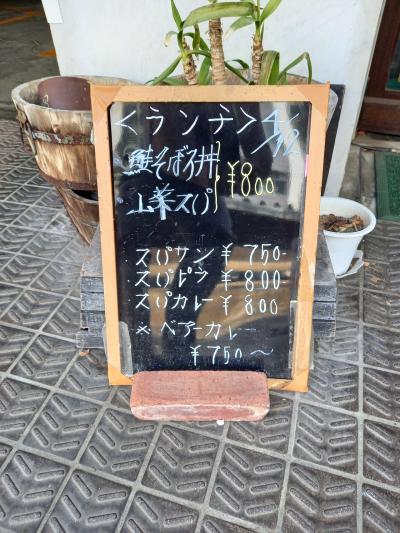 <ランチ> 4/12
鮭そぼろ丼
山菜スパ ¥800
スパサン ¥750-
スパピラ ¥800-
スパカレー ¥800
※ベアーカレー
¥750〜